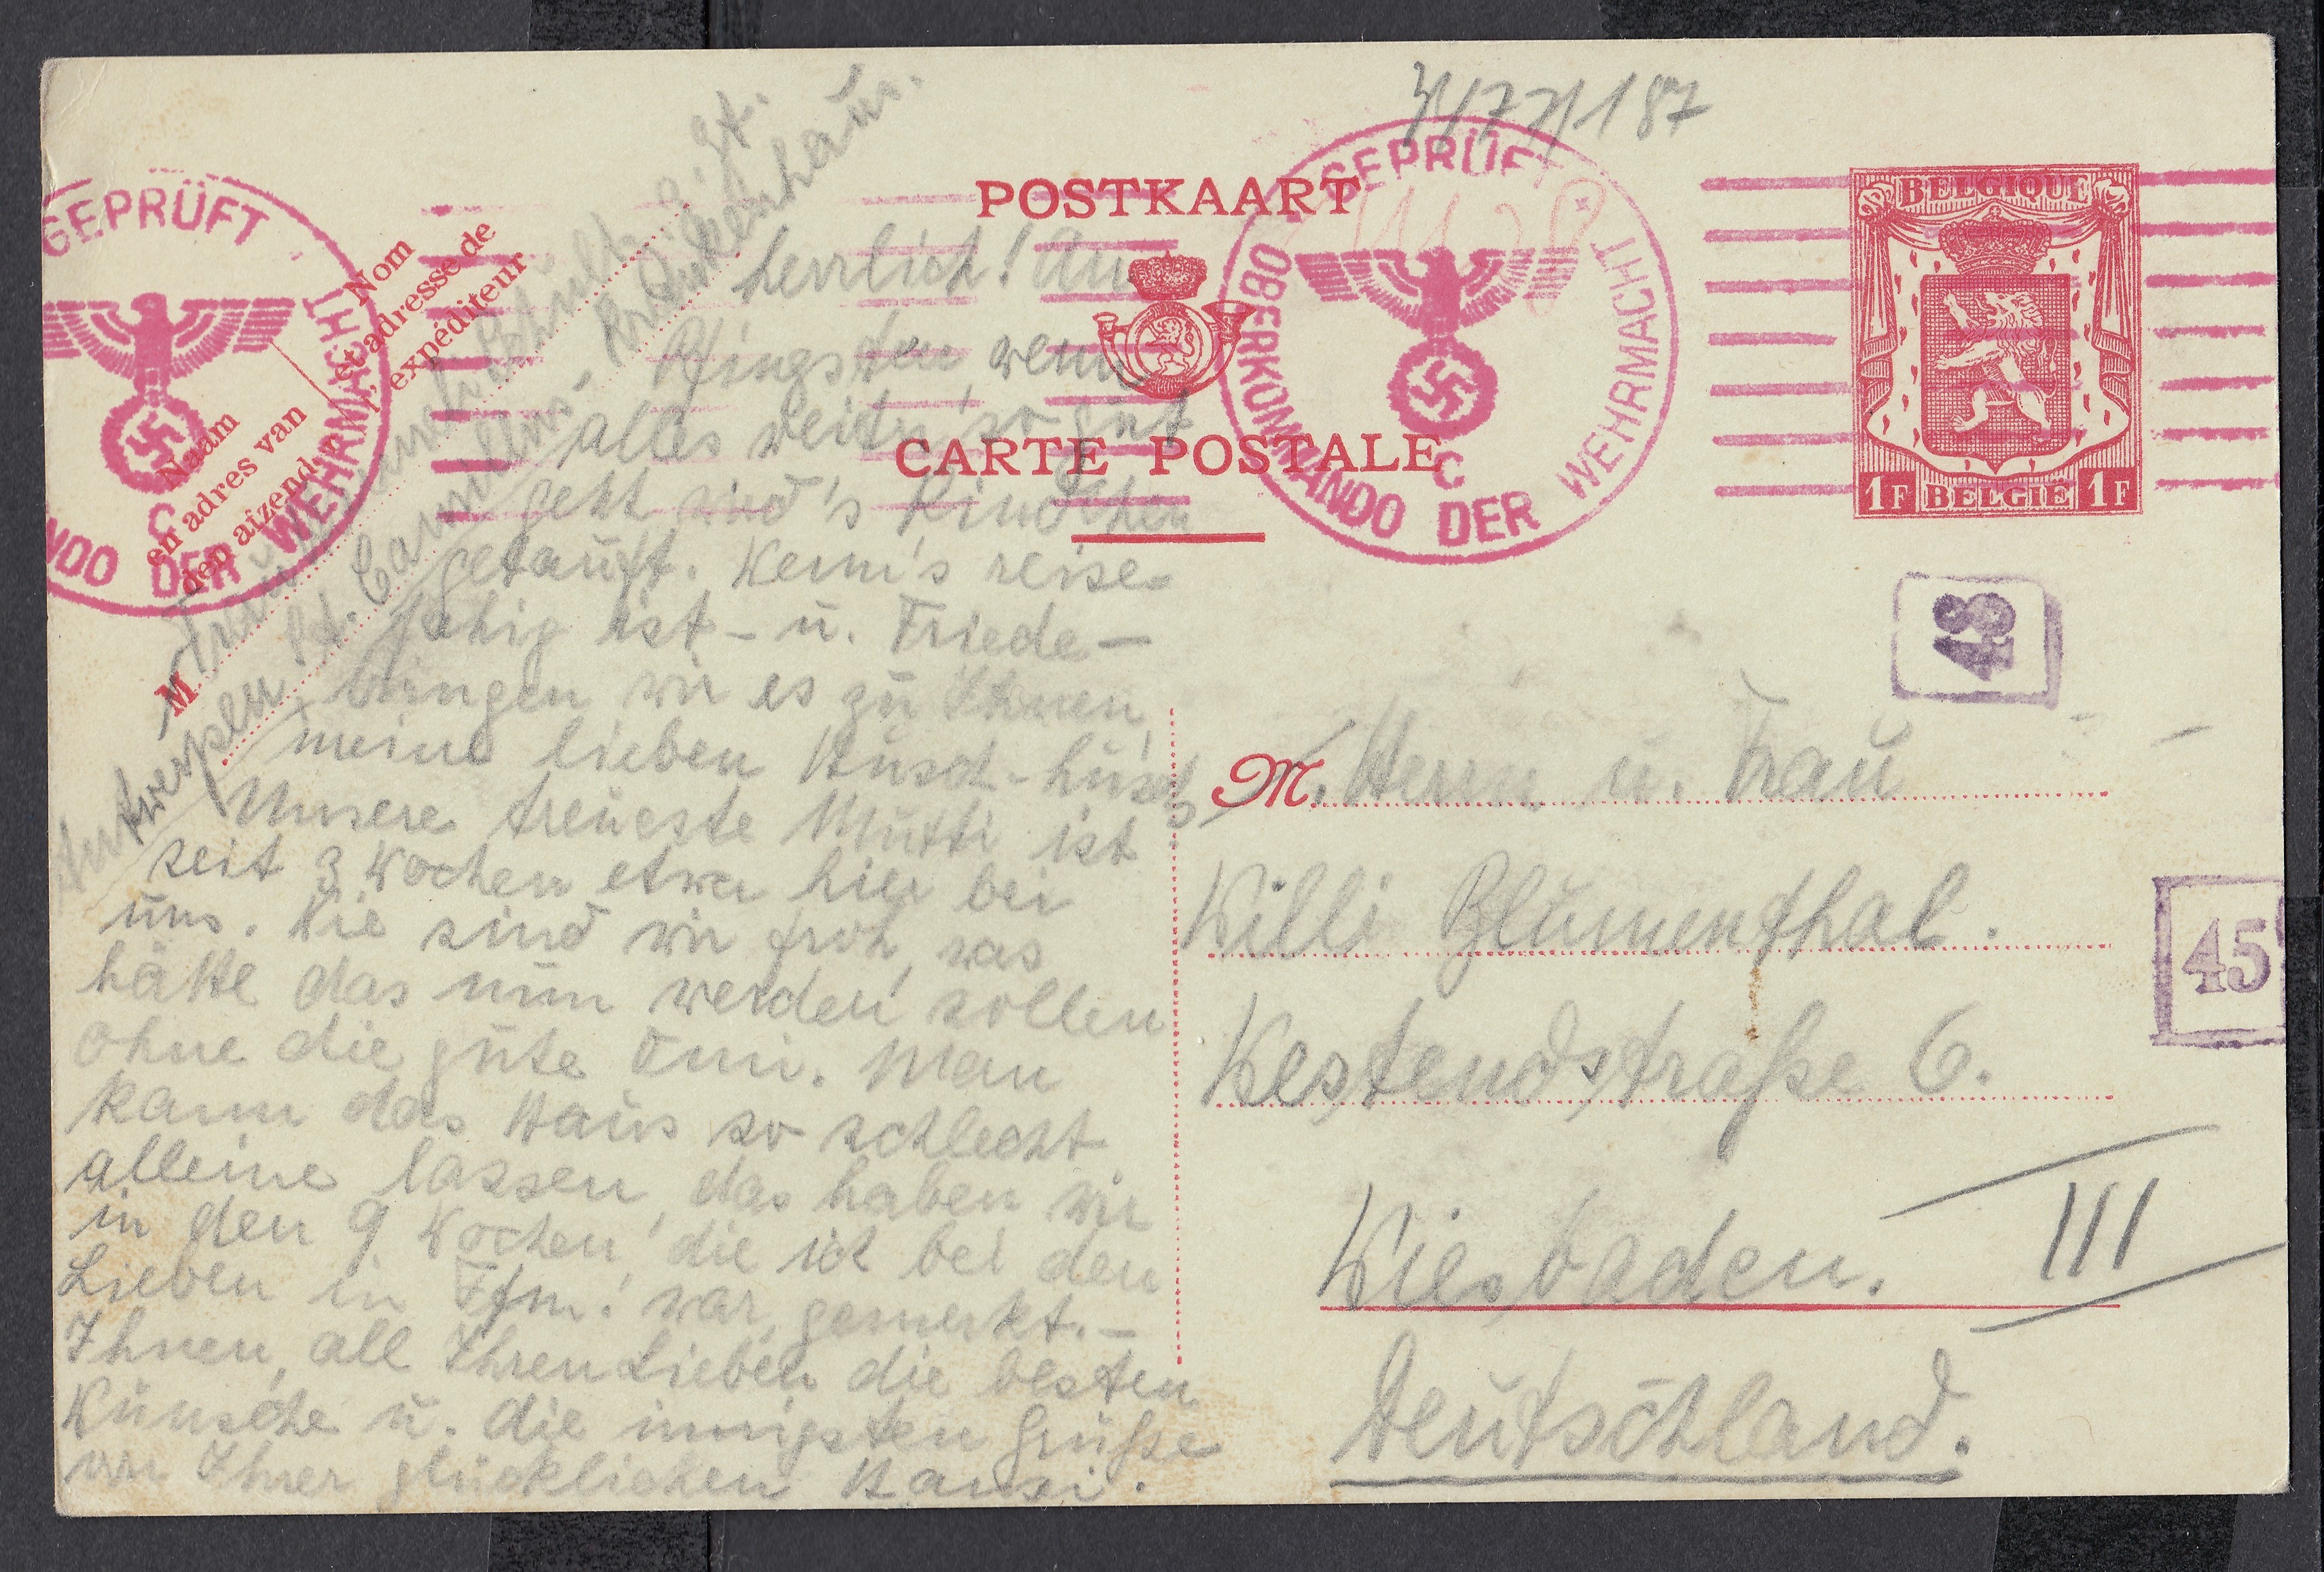 3/177/187
POSTKAART
CARTE POSTALE
BELGIQUE
1F BELGIË 1F
GEPRÜFT
OBERKOMMANDO DER WEHRMACHT
C
GEPRÜFT
NDO DER WEHRMACHT
C
Nom
et adresse de
l'expéditeur
Naam
en adres van
den afzend
M
Schultz. z. Zt.
Antwerpen, Krankenhaus.
herrlich! An
Pfingsten, wenn
alles weiter so gut
geht wird's Kindchen
getauft. Wenn's reise-
fähig ist – u. Friede –
bringen wir es zu Ihnen,
meine lieben
Unsere treueste Mutti ist
seit 3 Wochen etwa hier bei
uns. Wie sind wir froh, was
hätte das nun werden sollen
ohne die gute Omi. Man
kann das Haus so schlecht
alleine lassen, das haben wir
in den 9 Wochen, die ich bei den
Lieben in Ffm. war, gemerkt. –
Ihnen, all Ihren Lieben die besten
Wünsche u. die innigsten Grüße
von Ihrer glücklichen Hansi.
48
M. Herrn u. Frau
Willi Blumenthal.
45
Westendstraße 6.
Wiesbaden.
III
Deutschland.